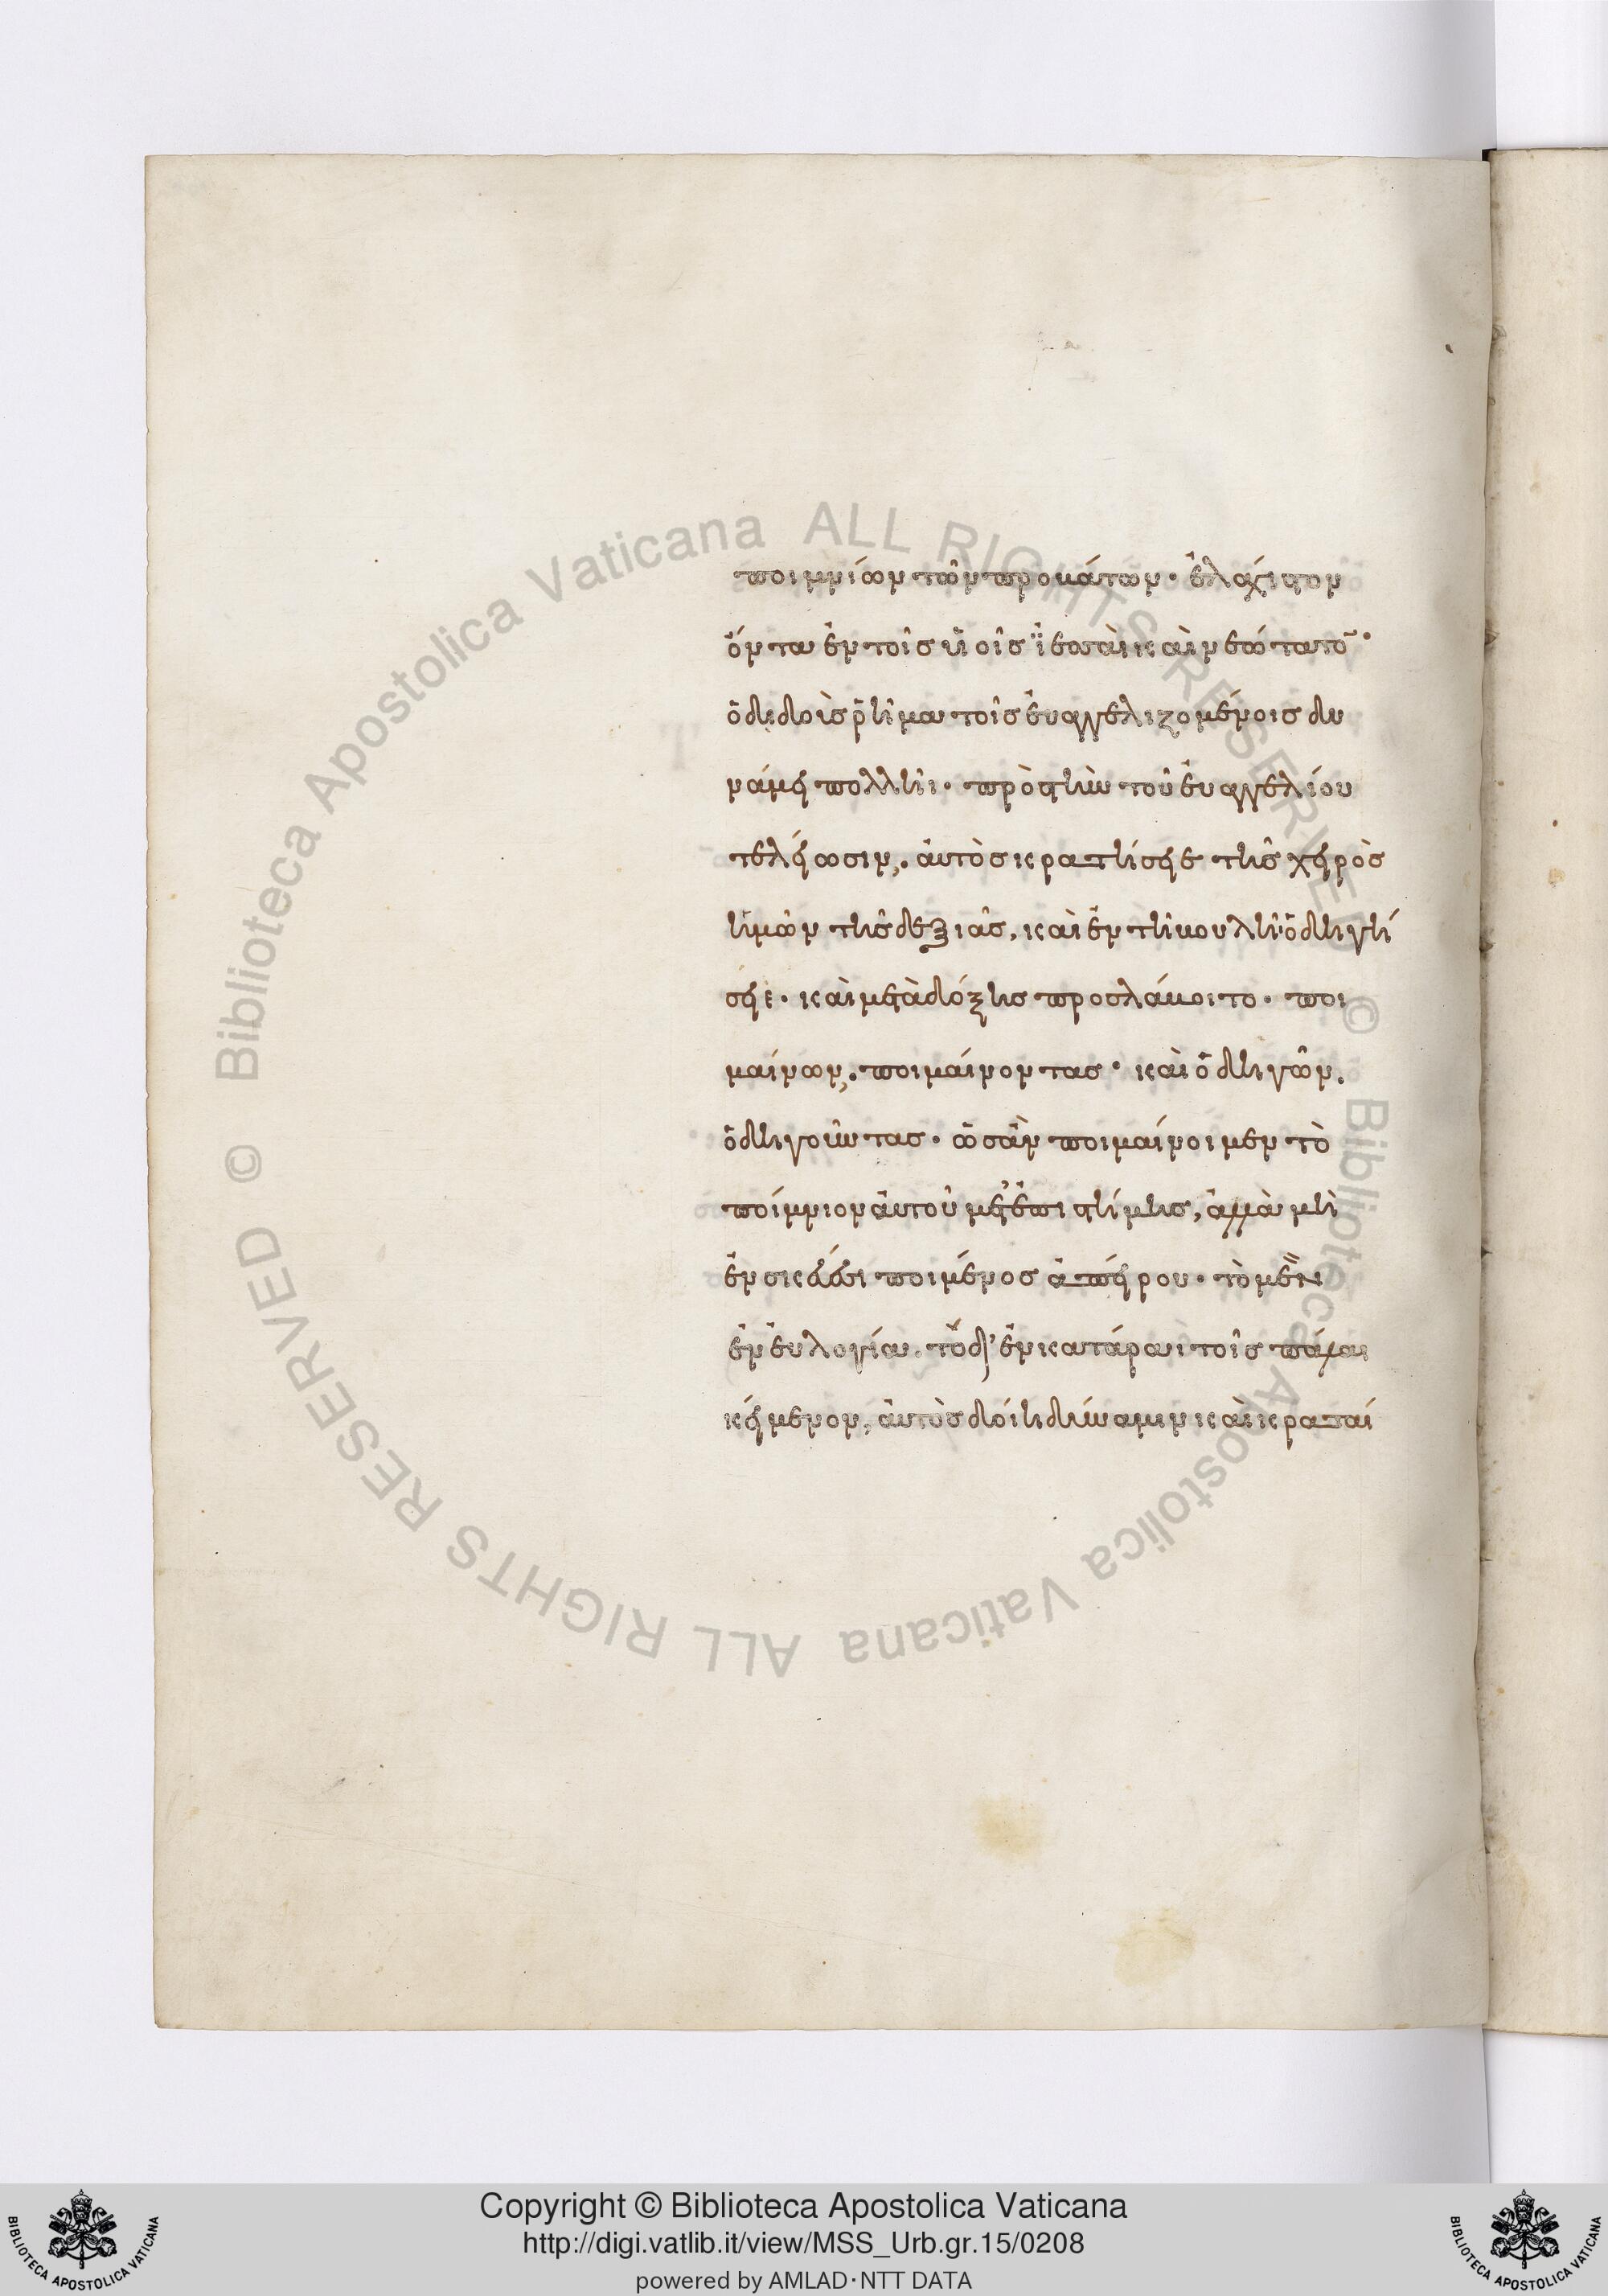 ποιμνίων τῶν προβάτων· ἐλάχιστον
ὄντα ἐν τοῖς υἱοῖς ἰεσσαὶ καὶ νεώτατο̅·
ὁ διδοὺς ῥῆμα τοῖς εὐαγγελιζομένοις δυ
νάμει πολλῆι· πρὸς τὴν τοῦ εὐαγγελίου
τελείωσιν, αὐτὸς κρατήσειε τῆς χειρὸς
ἡμῶν τῆς δεξιᾶς, καὶ ἐν τῆ βουλῆ ὁδηγή
σειε· καὶ μετὰ δόξης προσλάβοιτο· ποι
μαίνων, ποιμαίνοντας· καὶ ὁδηγῶν,
ὁδηγοῦντας· ὡς ἂν ποιμαίνοιμεν τὸ
ποίμνιον αὐτοῦ μετ' ἐπιστήμης, ἀλλὰ μὴ
ἐν σκεύεσι ποιμένος ἀπείρου· τὸ μὲν
ἐν εὐλογία, τὸ δ' ἐν κατάραι τοῖς πάλαι
κείμενον, αὐτὸς δοίη δύναμιν καὶ κραταί
Copyright © Biblioteca Apostolica Vaticana
http://digi.vatlib.it/view/MSS_Urb.gr.15/0208
powered by AMLAD·NTT DATA
© Biblioteca Apostolica Vaticana ALL RIGHTS RESERVED © Biblioteca Apostolica Vaticana ALL RIGHTS RESERVED
BIBLIOTECA APOSTOLICA VATICANA
BIBLIOTECA APOSTOLICA VATICANA